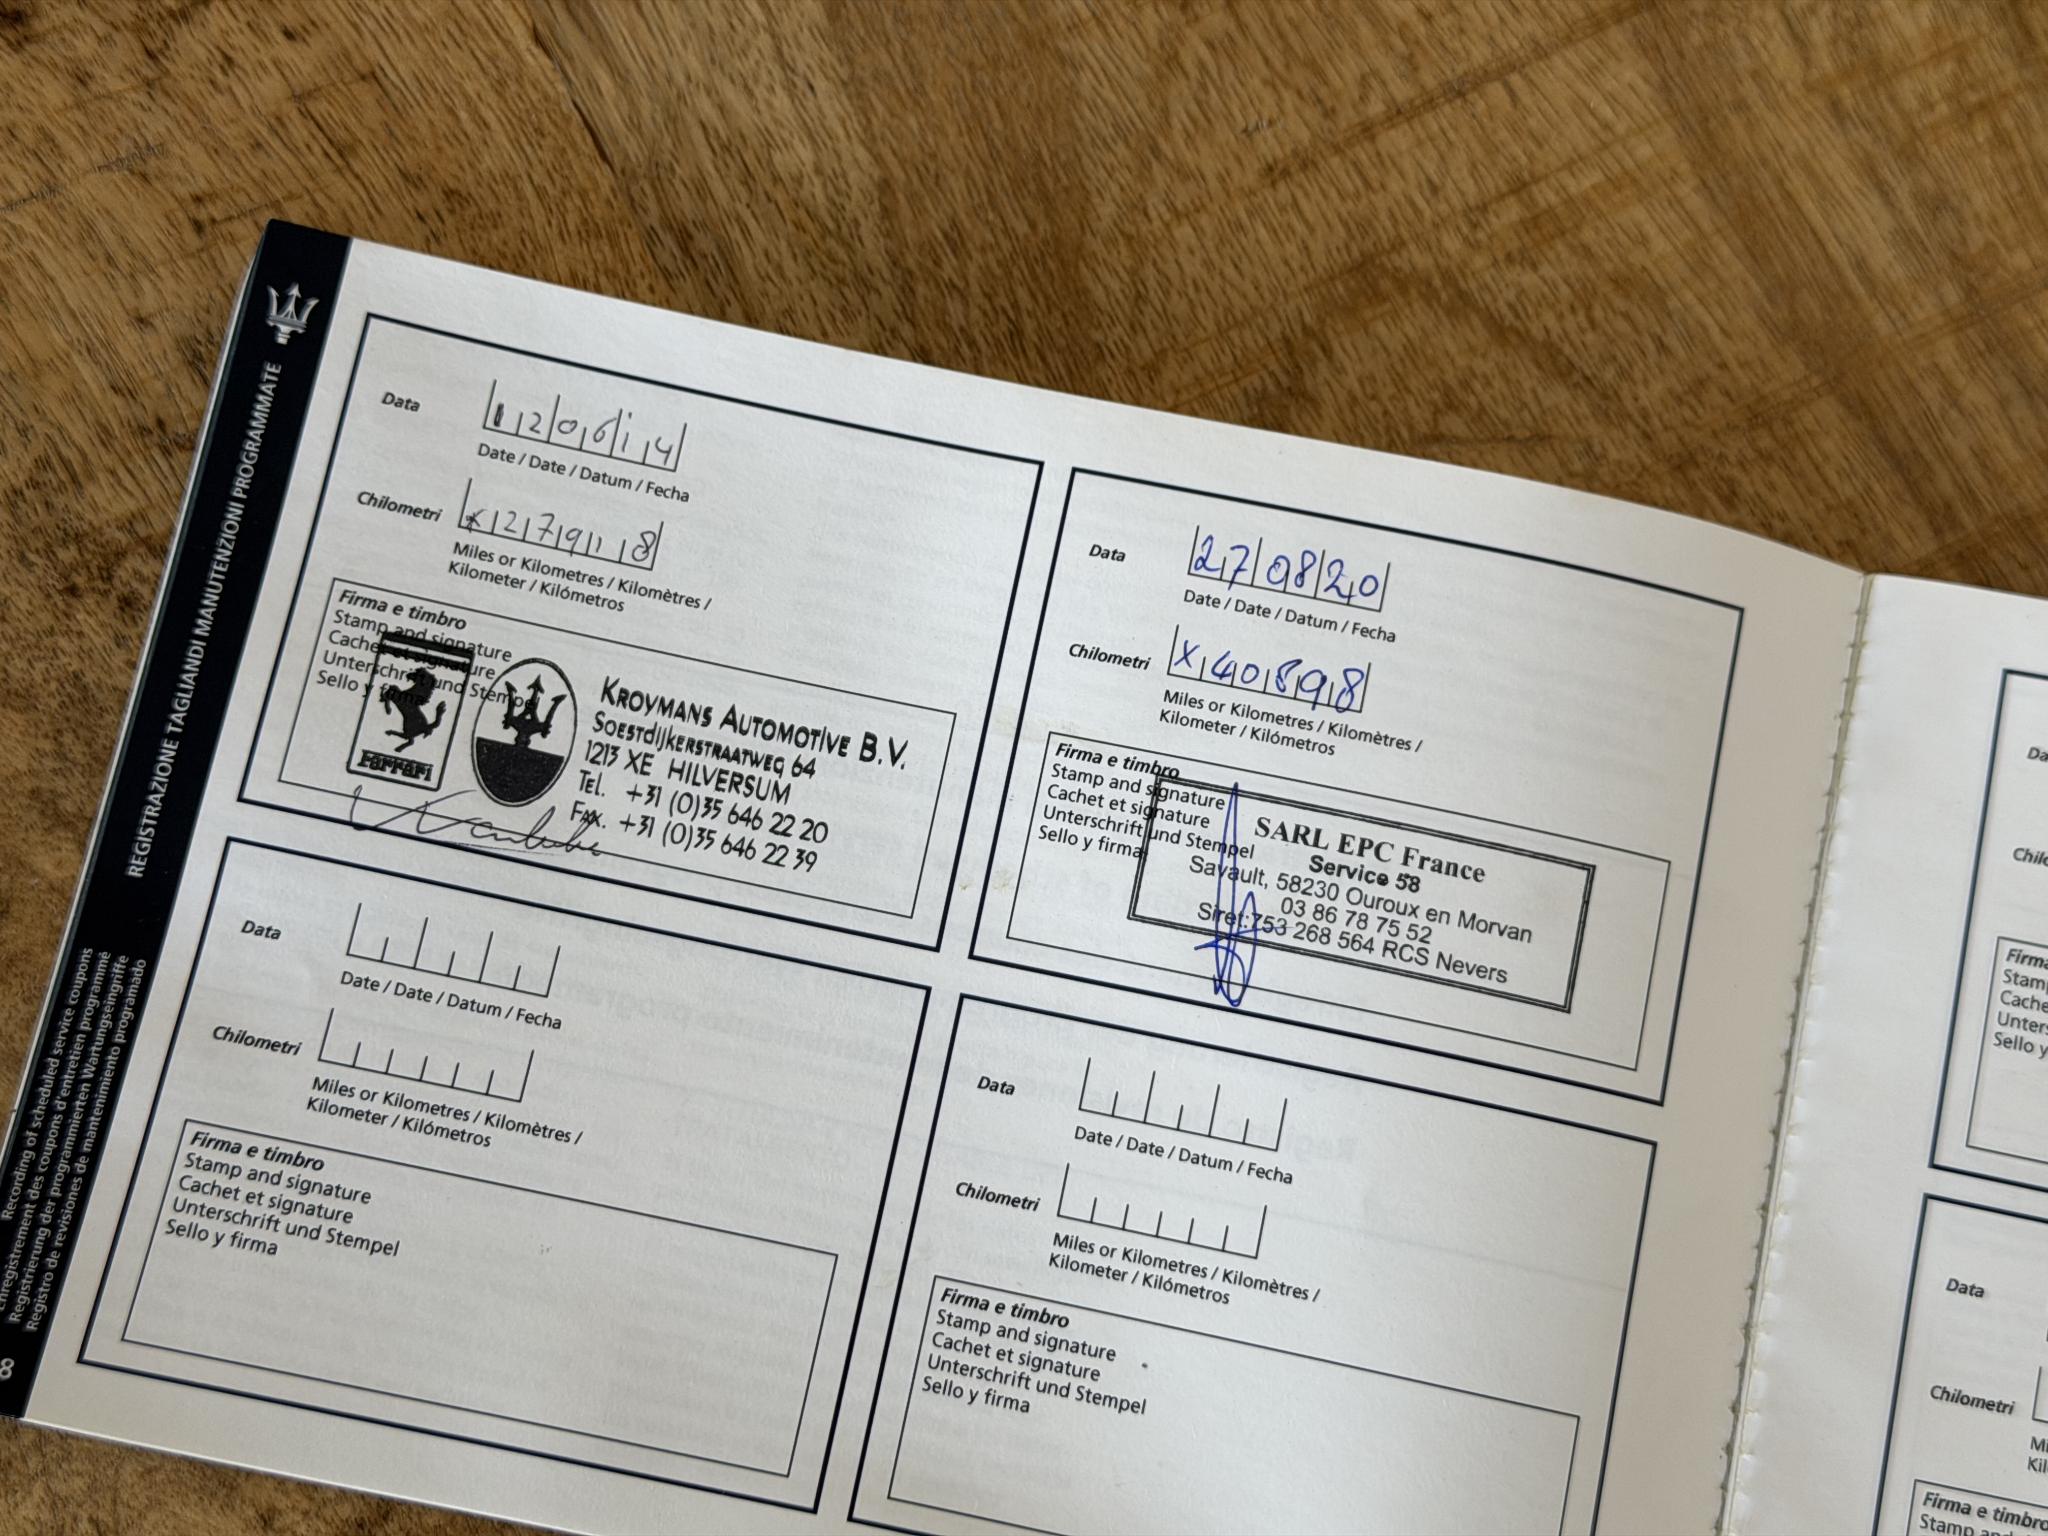 REGISTRAZIONE TAGLIANDI MANUTENZIONI PROGRAMMATE
Recording of scheduled service coupons
Enregistrement des coupons d'entretien programmé
Registrierung der programmierten Wartungseingriffe
Registro de revisiones de mantenimiento programado
8
Data 120614
Date / Date / Datum / Fecha
Chilometri x27918
Miles or Kilometres / Kilomètres /
Kilometer / Kilómetros
Firma e timbro
Stamp and signature
Cachet et signature
Unterschrift und Stempel
Sello y firma
Ferrari
KROYMANS AUTOMOTIVE B.V.
SOESTDIJKERSTRAATWEG 64
1213 XE HILVERSUM
TEL. +31 (0)35 646 22 20
FAX. +31 (0)35 646 22 39
Data 270820
Date / Date / Datum / Fecha
Chilometri x40898
Miles or Kilometres / Kilomètres /
Kilometer / Kilómetros
Firma e timbro
Stamp and signature
Cachet et signature
Unterschrift und Stempel
Sello y firma
SARL EPC France
Service 58
Savault, 58230 Ouroux en Morvan
03 86 78 75 52
Siret:753 268 564 RCS Nevers
Data
Date / Date / Datum / Fecha
Chilometri
Miles or Kilometres / Kilomètres /
Kilometer / Kilómetros
Firma e timbro
Stamp and signature
Cachet et signature
Unterschrift und Stempel
Sello y firma
Data
Date / Date / Datum / Fecha
Chilometri
Miles or Kilometres / Kilomètres /
Kilometer / Kilómetros
Firma e timbro
Stamp and signature
Cachet et signature
Unterschrift und Stempel
Sello y firma
Data
Chilometri
Firma e timbro